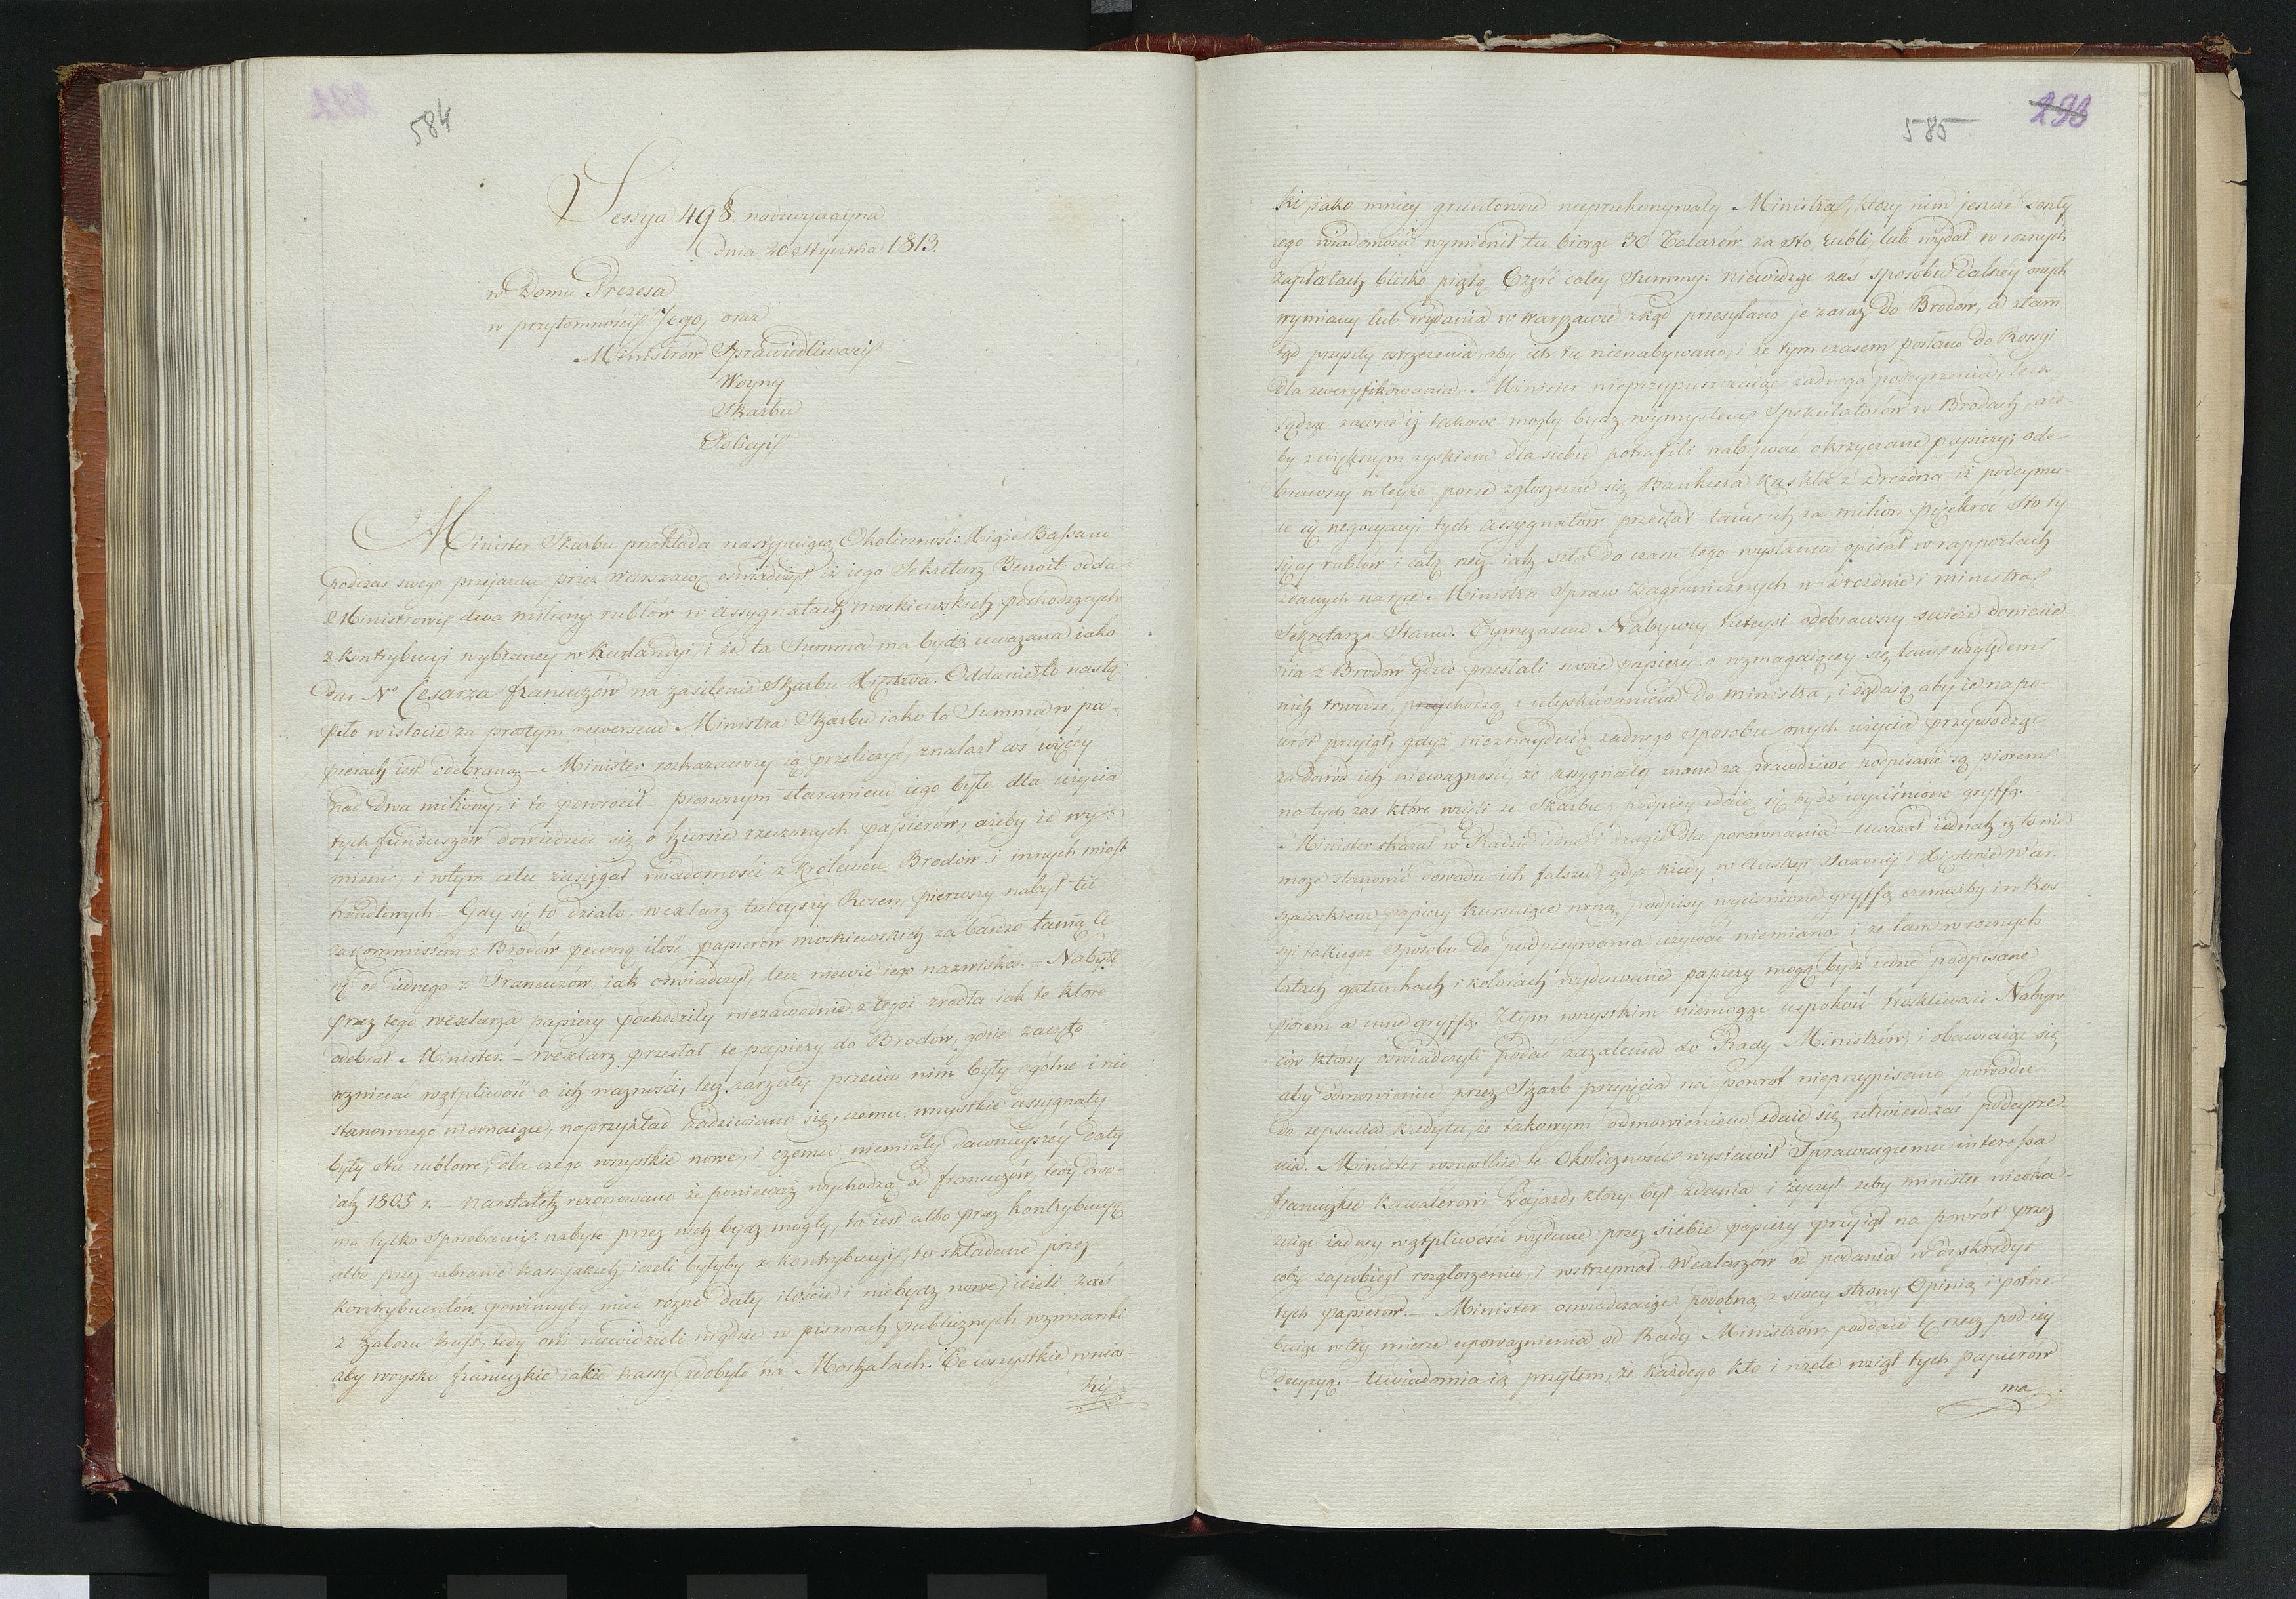 584
Sessya 498. nadzwyczayna
Dnia 20 Stycznia 1813.
w Domu Prezesa
w przytomności Jego, oraz
Ministrów Sprawiedliwości
Woyny
Skarbu
Policyi
Minister Skarbu przekłada następuiącą Okoliczność: Xiąże Bassano
podczas swego przejazdu przez Warszawę oświadczył iż iego Sekretarz Benoit odda
Ministrowi dwa miliony rublów w assygnatach moskiewskich pochodzących
z kontrybucyi wybraney w Kurlandyi, i że ta Summa ma bydź uważana iako
dar No Cesarza francuzów na zasilenie Skarbu Xięztwa. Oddanie to nastą-
piło wistocie za prostym rewersem Ministra Skarbu iako ta Summa w pa-
pierach iest odebraną — Minister rozkazawszy ią przeliczyć, znalazł coś więcey
nad dwa miliony, i to powrócił — pierwszym staraniem iego było dla użycia
tych funduszów dowiedzieć się o kursie rzeczonych papierów, ażeby ie wy-
mienić, i wtym celu zasięgał wiadomości z Królewca, Brodów i innych miast
handlowych — Gdy się to działo, wexlarz tuteyszy Rozen, pierwszy nabył tu
za kommissem z Brodów pewną ilość papierów moskiewskich za bardzo tanią Ce
nę od iednego z Francuzów, iak oświadczył, lecz niewie iego nazwiska. — Nabyte
przez tego wexlarza papiery pochodziły niezawodnie z tegoż zrodła iak te które
odebrał Minister. — wexlarz przesłał te papiery do Brodów, gdzie zaczęto
wzniecać wątpliwość o ich ważności, lecz zarzuty przeciw nim były ogólne i nic
stanowczego niemaiące, naprzykład zadziwiano się, czemu wszystkie assygnaty
były stu rublowe, dla czego wszystkie nowe, i czemu niemiały dawnieyszey daty
iak 1805 r. — naostatek rezonowano że ponieważ wychodzą od francuzów, tedy dwo-
ma tylko sposobami nabyte przez nich bydz mogły, to iest albo przez kontrybucyą
albo przez zabranie kass jakich ieżeli byłyby z kontrybucyi, to składane przez
kontrybuentów powinnyby mieć rozne daty ilości i niebydz nowe, ieżeli zaś
z zaboru kass, tedy oni niewidzieli nigdzie w pismach publicznych wzmianki
aby woysko francuzkie iakie kassy zdobyło na Moskalach. Te wszystkie wnios-
ki
585
293
ki iako mniey gruntowne nieprzekonywały Ministra, który nim jeszcze doszły
iego wiadomości wymienił tu biorąc 30 Talarów za sto rubli, lub wydał w roznych
zapłatach blisko piątą Część całey Summy: niewidząc zaś sposobu dalszey onych
wymiany lub wydania w Warszawie zkąd przesyłano je zaraz do Brodów, a ztam
tąd przyszły ostrzeżenia, aby ich tu nienabywano, i że tym czasem posłano do Rossyi
dla zweryfikowania, Minister nieprzypuszczaiąc żadnego podeyrzenia, lecz
sądząc zawsze iż takowe mogły bydz wymysłem Spekulatorów w Brodach, aże-
by z większym zyskiem dla siebie potrafili nabywać okrzyczane papiery; ode
brawszy wteyże porze zgłoszenie się Bankiera Kaskla z Drezna iż podeymu
ie się negocyacyi tych assygnatów przesłał tam ich za milion pięckroć sto ty
sięcy rublów i całą rzecz iak szła do czasu tego wysłania opisał w rapportach
zdanych naręce Ministra Spraw Zagranicznych w Dreznie i ministra
Sekretarza Stanu. Tymczasem Nabywcy tuteysi odebrawszy swieże doniesie-
nia z Brodów gdzie przesłali swoie papiery o wzmagaiącey się tam względem
nich trwodze, przychodzą z utyskiwaniem do ministra, i żądaią, aby ie napo-
wrót przyiął, gdyż nieznayduią żadnego sposobu onych użycia przywodząc
za dowód ich nieważności, że assygnaty znane za prawdziwe podpisane są piórem
na tych zaś które wzięli ze Skarbu, podpisy zdaią się bydź wyciśnione gryffą. —
Minister okazał w Radzie iedne i drugie dla porównania. — uważał iednak iż to nie
może stanowić dowodu ich fałszu, gdyż kiedy w Austryi Saxonij i Xięztwie War-
szawskiem papiery kursuiące noszą podpisy wyciśnione gryffą czemużby i w Ros-
syi takiegoż sposobu do podpisywania używać niemiano: i że tam w roznych
latach gatunkach i kolorach wydawane papiery mogą bydź iedne podpisane
piorem a inne gryffą. Z tym wszystkim niemogąc uspokoić troskliwości Nabyw-
ców którzy oświadczyli podać zażalenia do Rady Ministrów, i obawiaiąc się
aby odmowieniu przez Skarb przyięcia na powrót nieprzypisano powodu
do zepsucia kredytu, że takowym odmowieniem zdaie się utwierdzać podeyrze-
nia. Minister wszystkie te Okoliczności wystawił Sprawuiącemu interessa
francuzkie kawalerowi Bajard, który był zdania i życzył żeby minister nieoka-
zuiąc żadney wątpliwości wydane przez siebie papiery przyiął na powrót przez
coby zapobiegł rozgłoszeniu, i wstrzymał Wexlarzów od podania w dyskredyt
tych papierów. — Minister oświadczaiąc podobną z swey strony Opinią, i potrze
buiąc wtey mierze upoważnienia od Rady Ministrów, poddaie tę rzecz pod iey
decyzyą. — Uwiadomia ią przytem, że każdego kto i wzele wziął tych papierów
ma